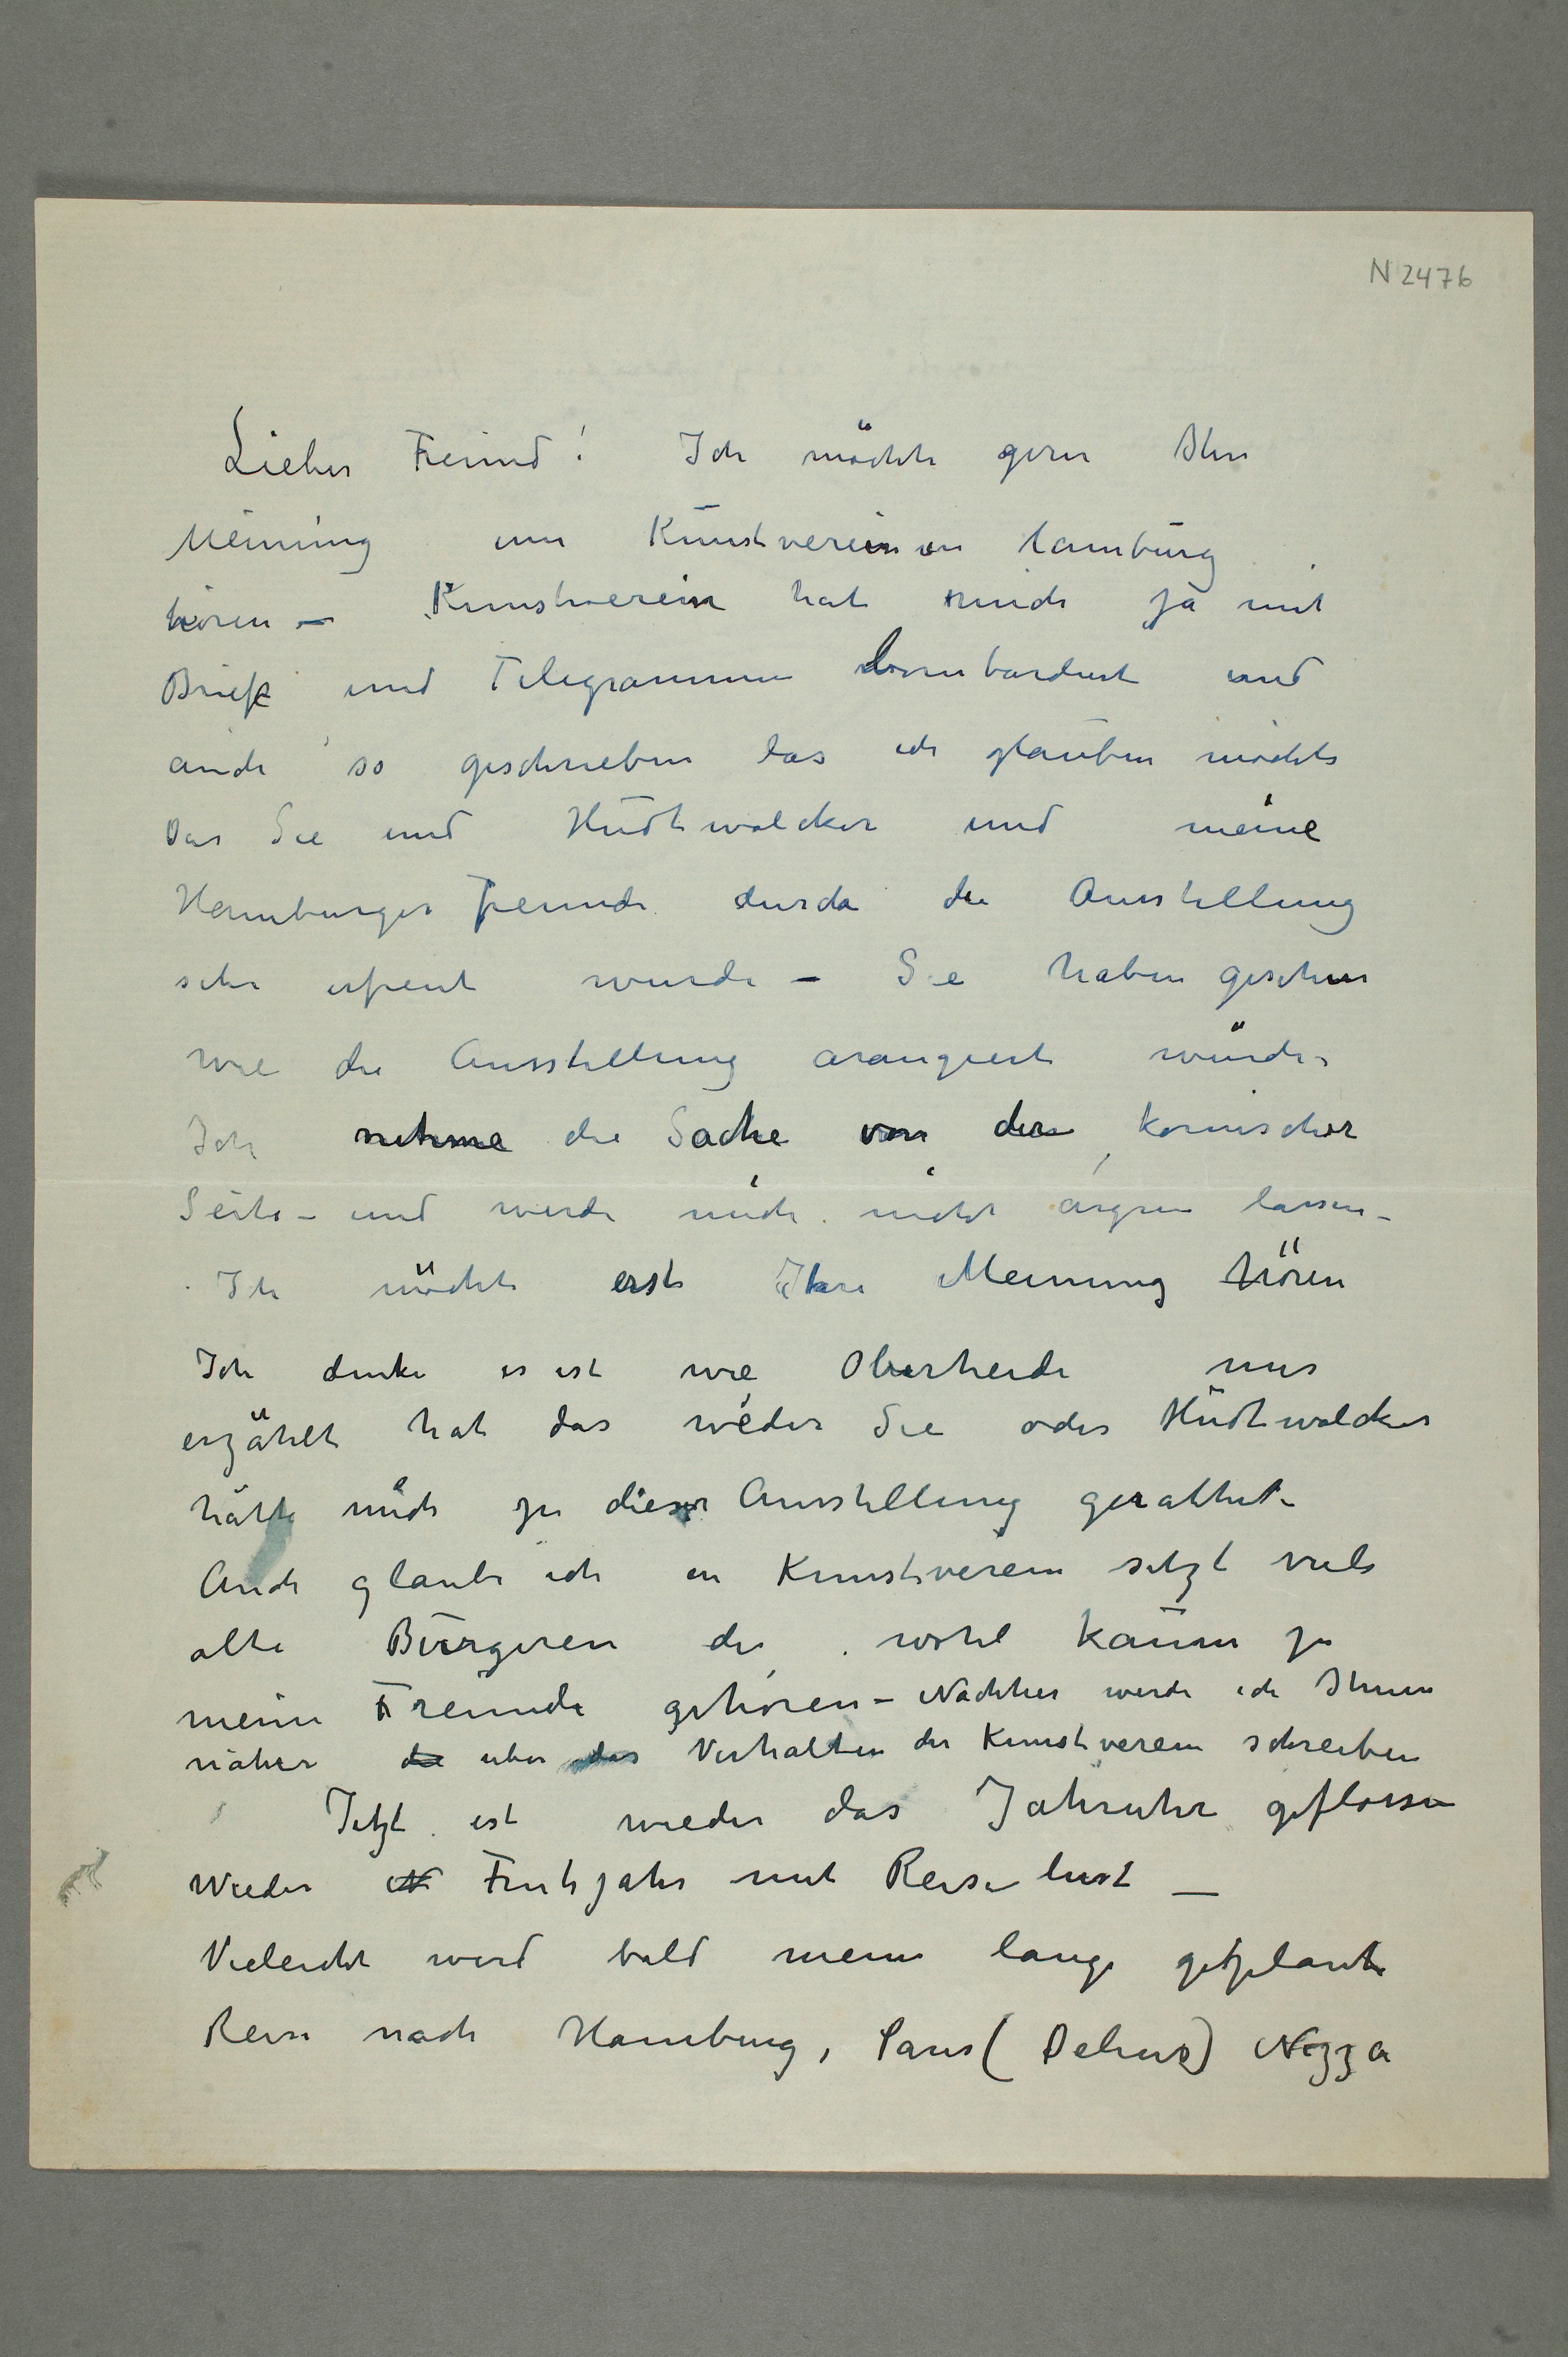 N 2476
Lieber Freund! Ich möchte gern Ihre
Meinung um Kunstverein in Hamburg
hören – Kunstverein hat mich ja mit
Briefe und Telegrammen bombardiert und
auch so geschrieben das ich glauben möchte
Das Sie und Hudtwalcker und meine
Hamburger Freunde durch die Ausstellung
sehr erfreut wurde – Sie haben gesehen
wie die Ausstellung arangiert würde.
Ich nehme die Sache von der komischer
Seite – und werde mich nicht ärgern lassen –
Ich möchte erst Ihre Meinung hören
Ich denke es ist wie Oberheide mir
erzählt hat das weder Sie oder Hudtwalcker
hätte mich zu dieser Ausstellung gerathet –
Auch glaube ich in Kunstverein sitzt viele
alte Bürgeren die wohl kaum zu
meine Freunde gehören – Nachher werde ich Ihnen
näher die über das Verhalten der Kunstverein schreiben
Jetzt ist wieder das Jahruhr geflossen
Wieder N Fruhjahr mit Reiselust –
Vieleicht wird bald meine lange geplante
Reise nach Hamburg, Paris (Delius) Nizza